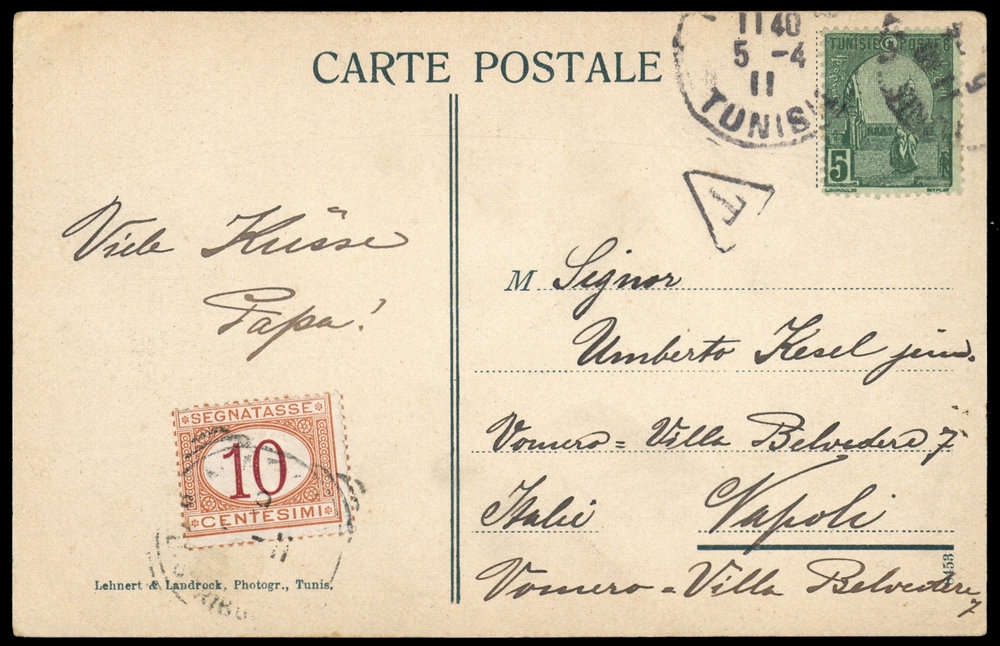 CARTE POSTALE
11 40
5 -4
11
TUNIS
TUNISIE POSTES
5
T
Viele Küsse
Papa!
M Signor
Umberto Kesel jun.
Vomero = Villa Belvedere 7
Italie Napoli
Vomero = Villa Belvedere 7
SEGNATASSE
10
CENTESIMI
-11
Lehnert & Landrock, Photogr., Tunis.